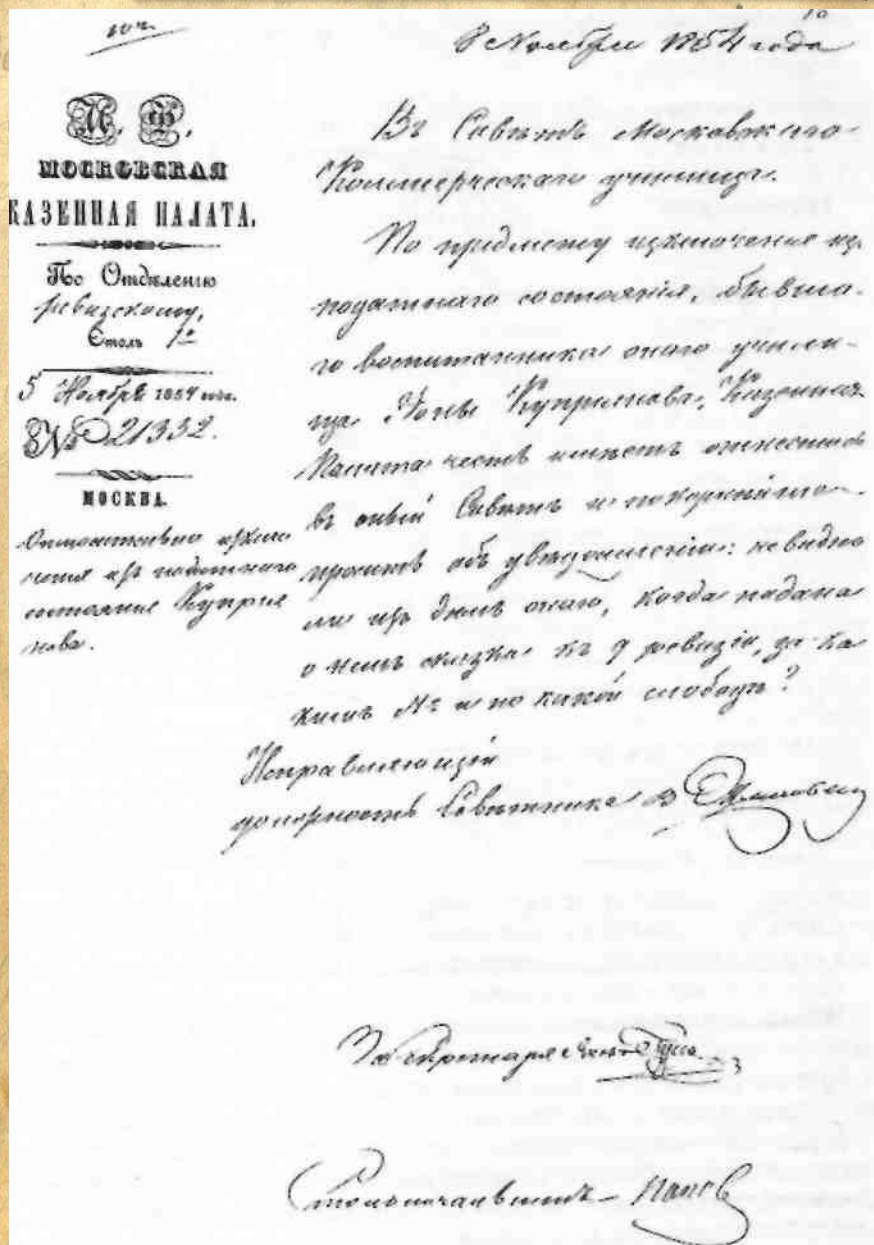 8 Ноября 1854 года
М. Ф.
МОСКОВСКАЯ
КАЗЕННАЯ ПАЛАТА.
По Отдѣленію
ревизскому,
Столъ 1й
5 Ноября 1854 года.
№ 21332.
МОСКВА.
Относительно исклю
ченія изъ податнаго
состоянія Купріа
нова.
Въ Совѣтъ Московскаго
Коммерческаго училища.
По предмету исключенія изъ
податнаго состоянія, бывша-
го воспитанника онаго учили-
ща Купріанова, Казенная
Палата честь имѣетъ отнестись
въ оный Совѣтъ и покорнѣйше
проситъ объ увѣдомленіи: не видно
ли изъ дѣлъ онаго, когда подана
о немъ сказка къ 9 ревизіи, за ка
кимъ № и по какой слободѣ?
Исправляющій
должность Совѣтника
За Секретаря
Столоначальникъ Поповъ